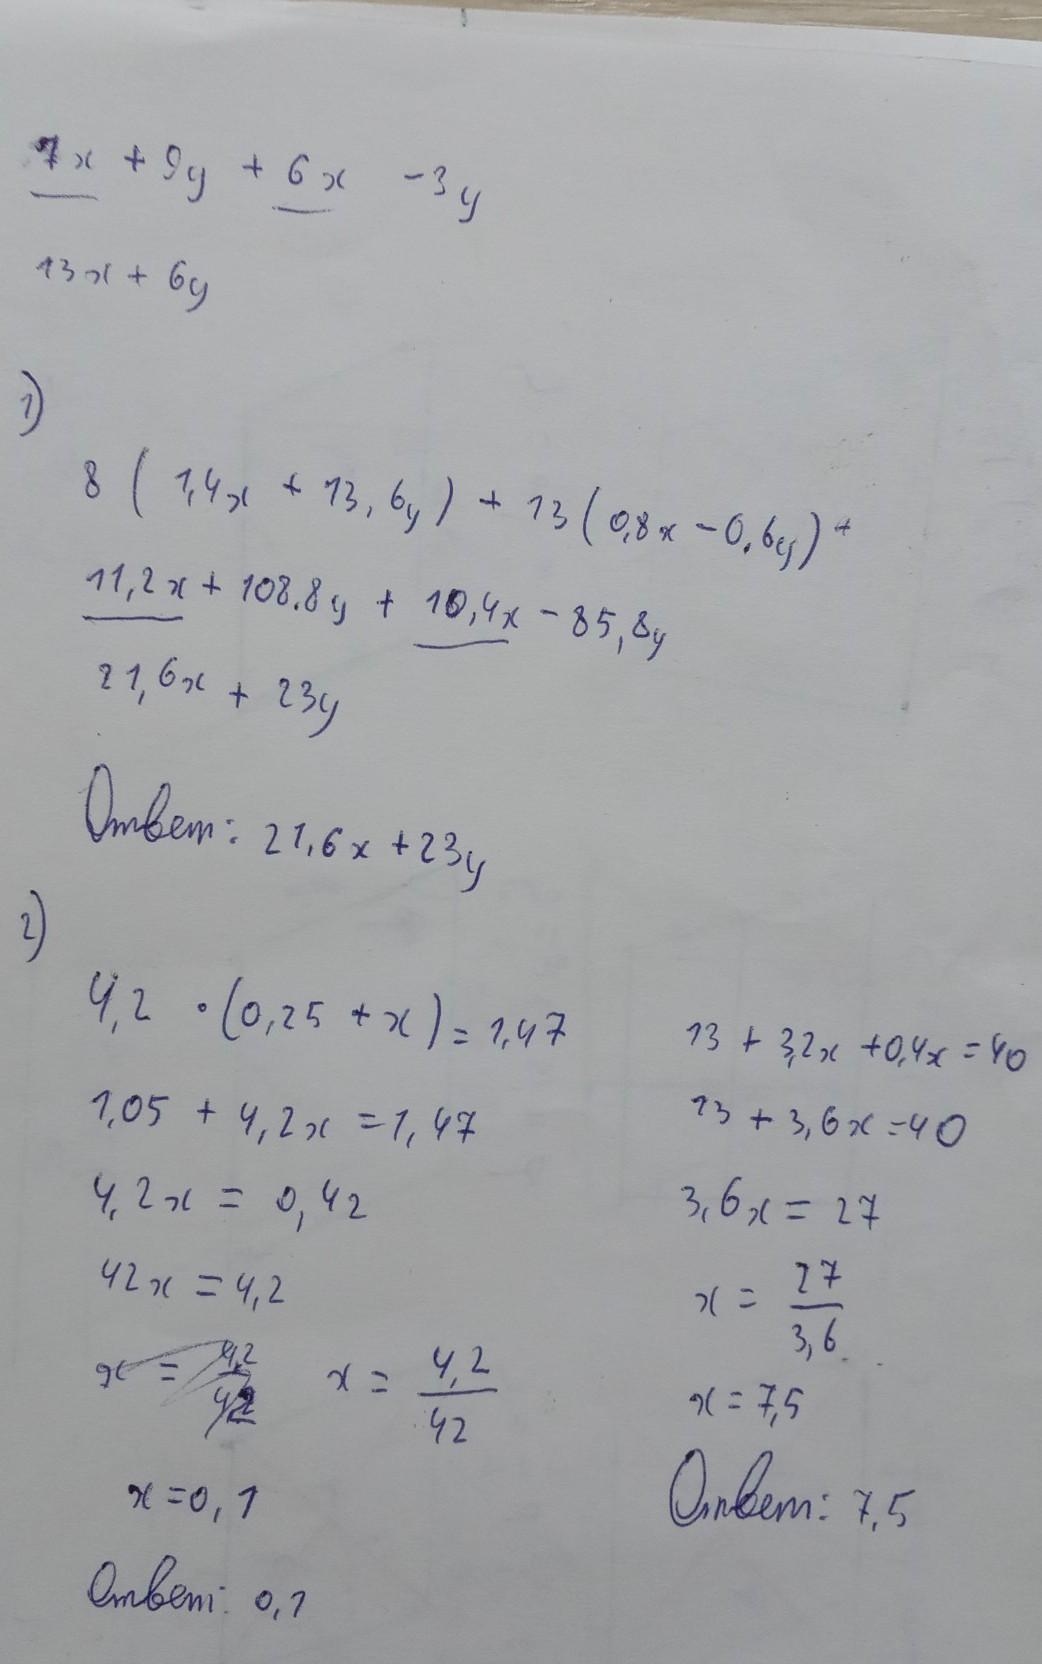 7x + 9y + 6x - 3y
13x + 6y
1)
8 ( 1,4x + 13,6y) + 13 (0,8x - 0,6y) +
11,2x + 108.8y + 10,4x - 85,8y
21,6x + 23y
Ответ: 21,6x + 23y
2)
4,2 · (0,25 + x) = 1,47
1,05 + 4,2x = 1,47
4,2x = 0,42
42x = 4,2
x = 4,2/42 x = 4,2/42
x = 0,1
Ответ: 0,1
13 + 3,2x + 0,4x = 40
13 + 3,6x = 40
3,6x = 27
x = 27/3,6
x = 7,5
Ответ: 7,5